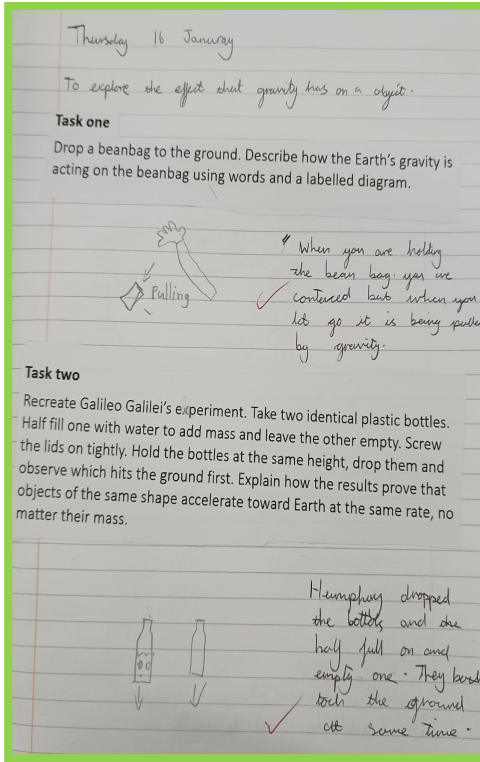 Thursday 16 Januray
To explore the effect that gravity has on a object.
Task one
Drop a beanbag to the ground. Describe how the Earth's gravity is
acting on the beanbag using words and a labelled diagram.
When you are holding
the bean bag. you are
Pulling
but when you
let go it is being pulle
by gravity.
Task two
Recreate Galileo Galilei's experiment. Take two identical plastic bottles.
Half fill one with water to add mass and leave the other empty. Screw
the lids on tightly. Hold the bottles at the same height, drop them and
observe which hits the ground first. Explain how the results prove that
objects of the same shape accelerate toward Earth at the same rate, no
matter their mass.
Humphray dropped
the and the
half full on and
empty one. They
the ground
att same time.